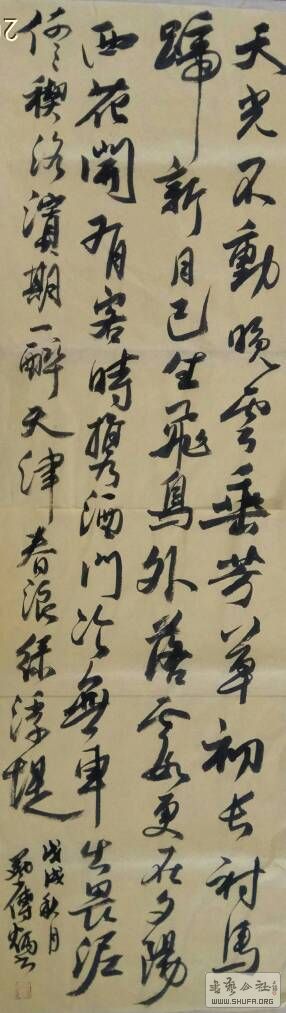 天光不動晚雲垂芳草初长衬馬
蹄新月已生飛鳥外落霞更在夕陽
西花開有客時攜酒門冷無車出畏泥
修禊洛濱期一醉天津春浪綠浮堤
戊戌秋月
傅炳
书艺公社
WWW.SHUFA.ORG